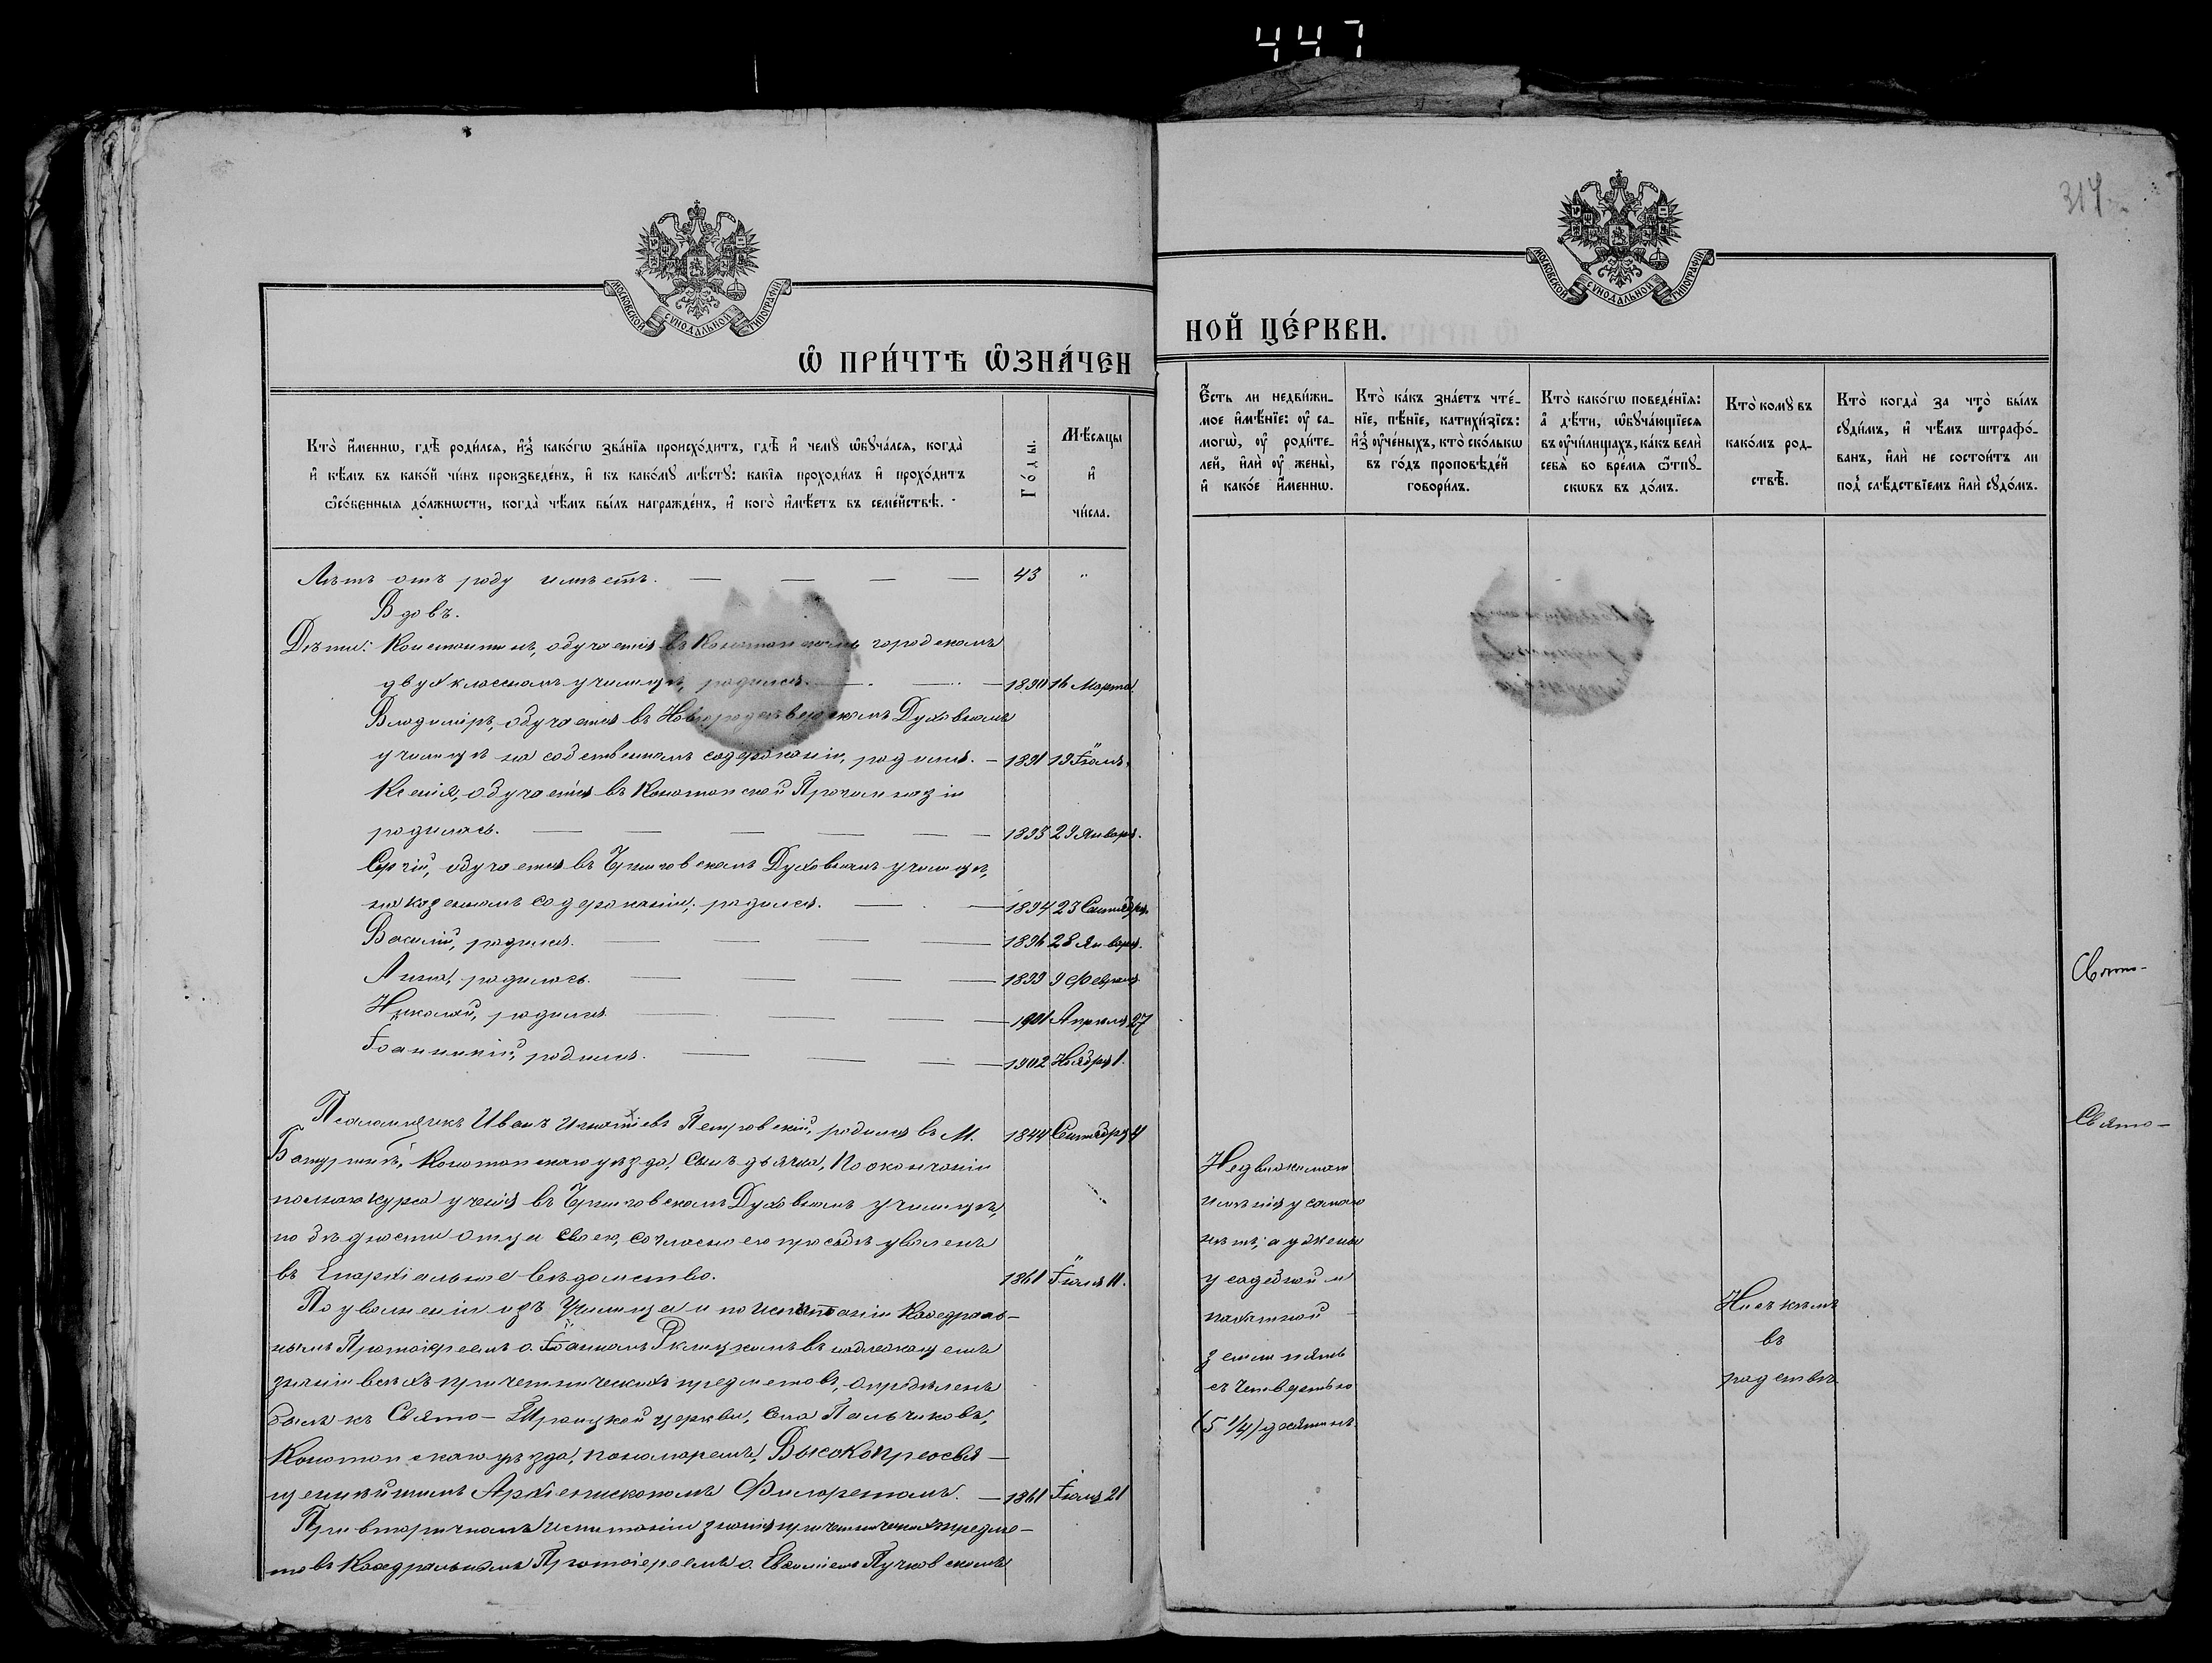 447
317
МОСКОВСКОЙ СѴНОДАЛЬНОЙ ТИПОГРАФІИ
Ѡ ПРИ́ЧТѢ ѠЗНА́ЧЕН
Кто̀ и҆́меннѡ, гдѣ̀ роди́лся, и҆з̾ како́гѡ зва́нїѧ происхо́дитъ, гдѣ̀ и҆ чемꙋ̀ ѡ҆бꙋча́лсѧ, когда̀
и҆ кѣ́мъ въ како́й чи́нъ произведе́нъ, и҆ къ како́мꙋ мѣ́стꙋ: какі́ѧ проходи́лъ и҆ прохо́дитъ
ѻ҆со́бенныѧ до́лжнѡсти, когда̀ чѣ́мъ бы́лъ награжде́нъ, и҆ кого̀ и҆мѣ́етъ въ семе́йствѣ.
Го́ды.
Мѣ́сѧцы
и҆
чи́сла.
Лѣтъ отъ роду имѣетъ. 43 "
Вдовъ.
Дѣти: Константинъ, обучается въ Конотопскомъ городскомъ
двухклассномъ училищѣ, родился. 1890 16 Марта
Владиміръ, обучается въ Новгородсѣверскомъ Духовномъ
училищѣ на собственномъ содержаніи, родился. 1891 19 Іюля.
Ксенія, обучается въ Конотопской Прогимназіи
родилась. 1893 29 Января.
Сергій, обучается въ Черниговскомъ Духовномъ училищѣ,
на казенномъ содержаніи, родился. 1894 23 Сентября.
Василій, родился. 1896 28 Января.
Анна, родилась. 1899 9 Февраля
Николай, родился 1901 Апрѣля 27
Іоанникій, родился. 1902 Ноября 1.
Псаломщикъ Иванъ Игнатіевъ Петровскій, родился въ М. 1844 Сентября 4
Батуринѣ, Конотопскаго уѣзда, сынъ дьячка. По окончаніи
полнаго курса ученія въ Черниговскомъ Духовномъ училищѣ,
по бѣдности отца своего, согласно его просьбѣ уволенъ
въ Епархіальное вѣдомство. 1861 Іюля 11.
По уволненіи изъ Училища и по испытаніи Каѳедраль-
нымъ Протоіереемъ о. Іоанномъ въ надлежащемъ
знаніи всѣхъ причетническихъ предметовъ, опредѣленъ
былъ къ Свято-Троицкой церкви, села Пальчиковъ,
Конотопскаго уѣзда, пономаремъ, Высокопреосвя-
щеннѣйшимъ Архіепископомъ Филаретомъ. 1861 Іюля 21
При вторичномъ испытаніи знанія причетническихъ предме-
товъ Каѳедральнымъ Протоіереемъ о. Евѳиміемъ Пучковскимъ
МОСКОВСКОЙ СѴНОДАЛЬНОЙ ТИПОГРАФІИ
НОЙ ЦЕ́РКВИ.
Е҆́сть ли недви́жи-
мое и҆мѣ́нїе: ᲂу҆ са-
могѡ̀, ᲂу҆ роди́те-
лей, и҆лѝ ᲂу҆ жены̀,
и҆ како́е и҆́меннѡ.
Кто̀ ка́къ зна́етъ чте́-
нїе, пѣ́нїе, катихи́зїсъ:
и҆з̾ ᲂу҆че́ныхъ, кто̀ ско́лькѡ
въ го́дъ проповѣ́дей
говори́лъ.
Кто̀ како́гѡ поведе́нїѧ:
а҆ дѣ́ти, ѡ҆бꙋча́ющїесѧ
въ ᲂу҆чи́лищахъ, ка́къ велѝ
себѧ̀ во вре́мѧ ѿпꙋ-
скѡвъ въ до́мъ.
Кто̀ комꙋ̀ въ
како́мъ род-
ствѣ̀.
Кто̀ когда̀ за что̀ бы́лъ
сꙋди́мъ, и҆ чѣ́мъ штрафо́-
ванъ, и҆лѝ не состои́тъ ли
под̾ слѣ́дствїемъ и҆лѝ сꙋдо́мъ.
Недвижимаго
имѣнія у самого
нѣтъ, а у жены
усадебной и
пахатной
земли пять
съ четвертью
(5 1/4) десятинъ
Ни съ кѣмъ
въ
родствѣ
Свято-
Свято-